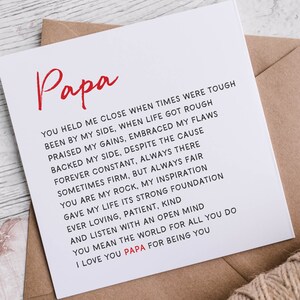 Papa
YOU HELD ME CLOSE WHEN TIMES WERE TOUGH
BEEN BY MY SIDE, WHEN LIFE GOT ROUGH
PRAISED MY GAINS, EMBRACED MY FLAWS
BACKED MY SIDE, DESPITE THE CAUSE
FOREVER CONSTANT, ALWAYS THERE
SOMETIMES FIRM, BUT ALWAYS FAIR
YOU ARE MY ROCK, MY INSPIRATION
GAVE MY LIFE ITS STRONG FOUNDATION
EVER LOVING, PATIENT, KIND
AND LISTEN WITH AN OPEN MIND
YOU MEAN THE WORLD FOR ALL YOU DO
I LOVE YOU PAPA FOR BEING YOU